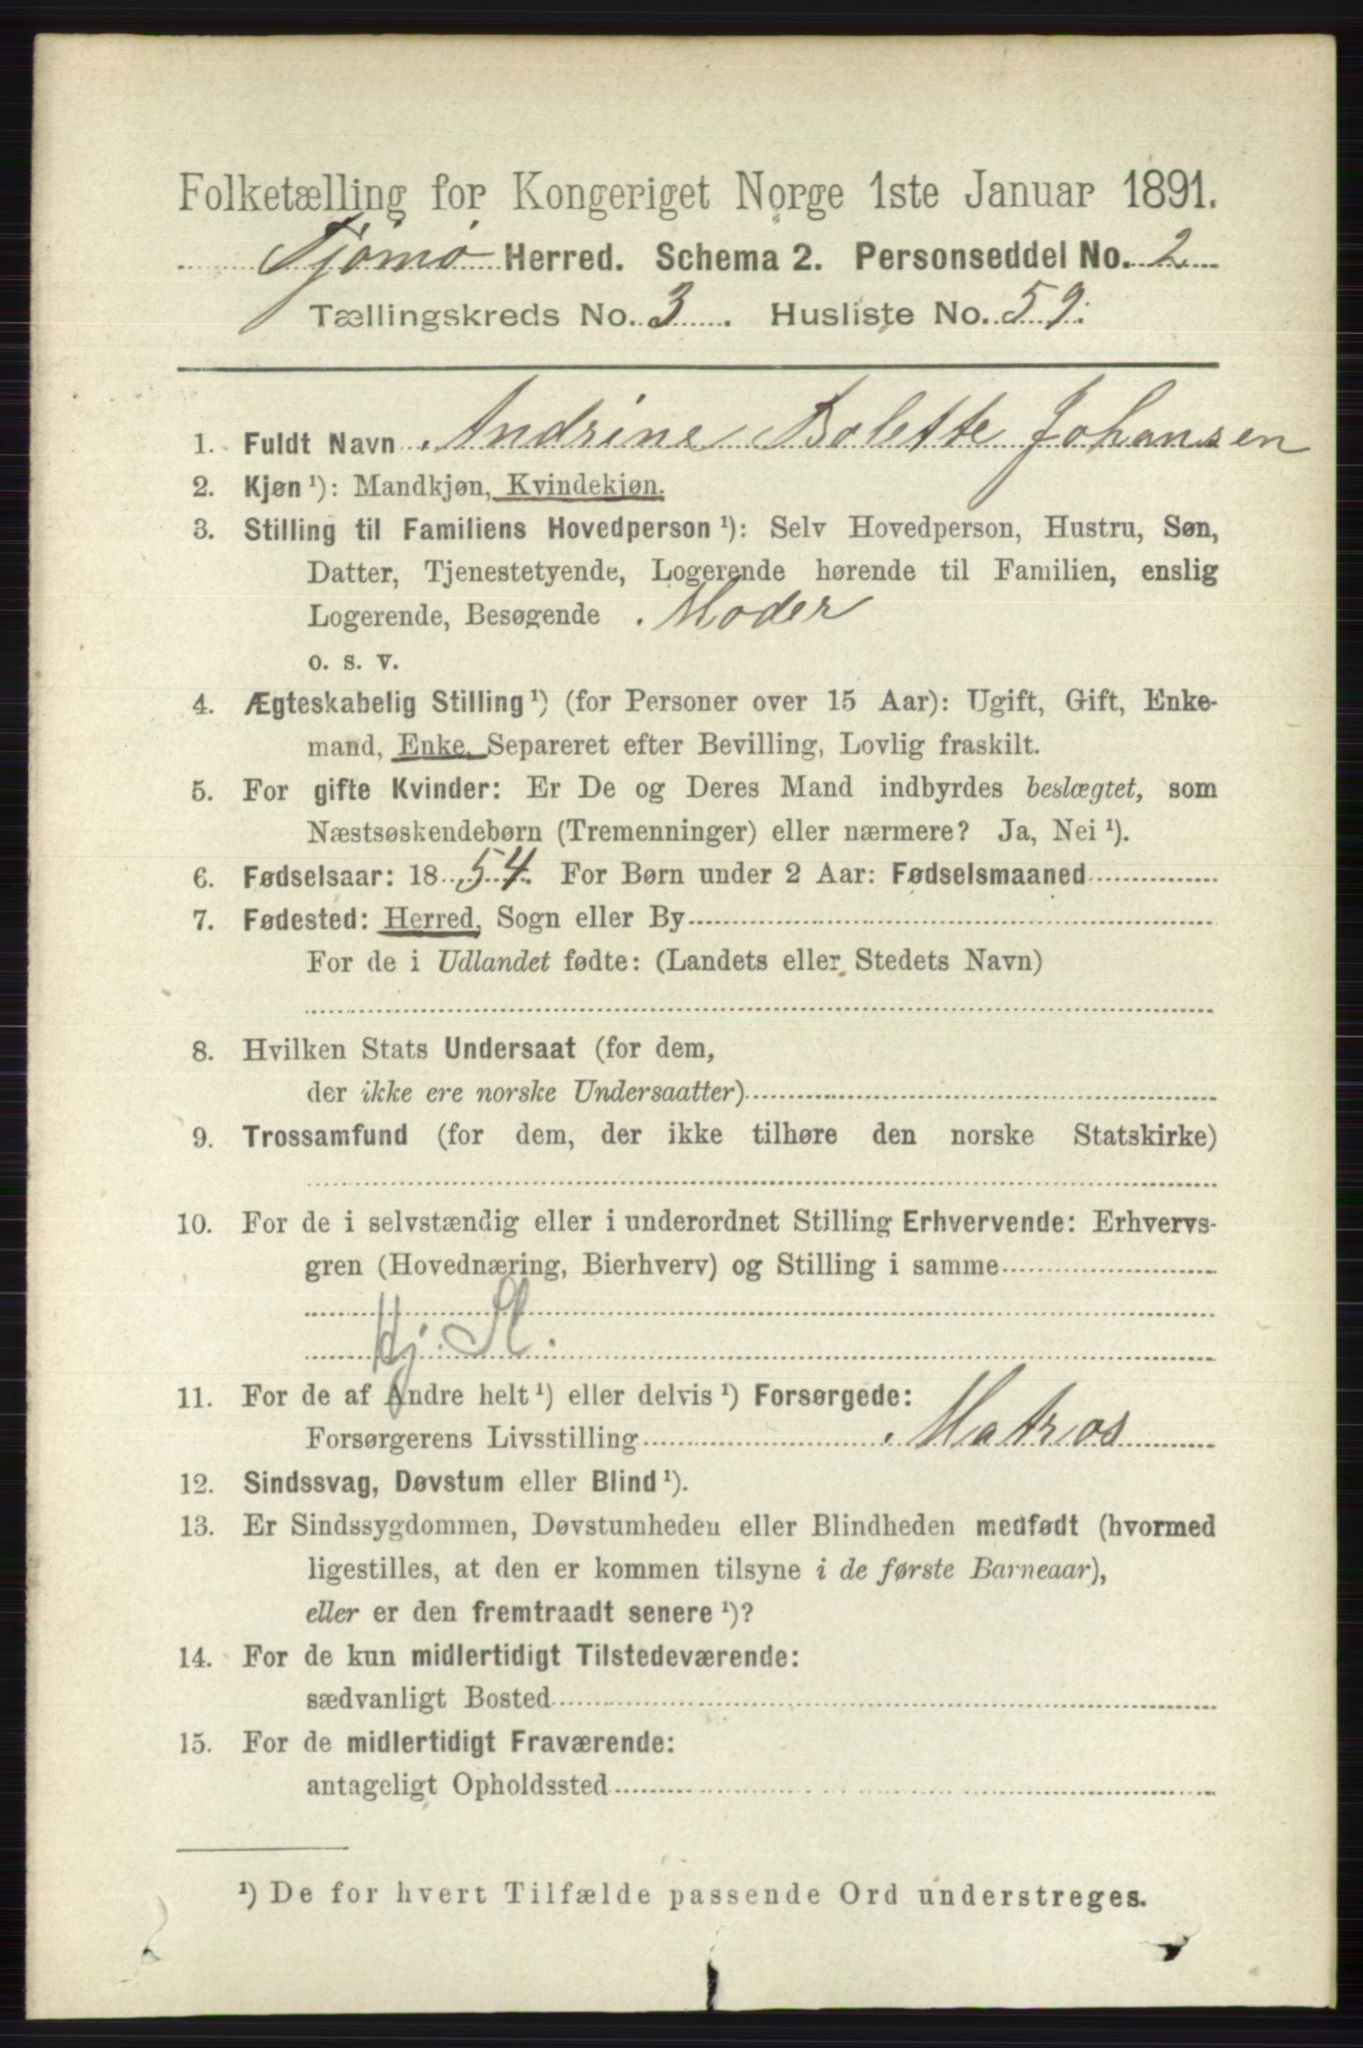 Folketælling for Kongeriget Norge 1ste Januar 1891.
Tjømø Herred. Schema 2. Personseddel No. 2
Tællingskreds No. 3. Husliste No. 59.
1. Fuldt Navn Andrine Bolette Johansen
2. Kjøn ¹): Mandkjøn, Kvindekjøn.
3. Stilling til Familiens Hovedperson ¹): Selv Hovedperson, Hustru, Søn,
Datter, Tjenestetyende, Logerende hørende til Familien, enslig
Logerende, Besøgende Moder
o. s. v.
4. Ægteskabelig Stilling ¹) (for Personer over 15 Aar): Ugift, Gift, Enke-
mand, Enke, Separeret efter Bevilling, Lovlig fraskilt.
5. For gifte Kvinder: Er De og Deres Mand indbyrdes beslægtet, som
Næstsøskendebørn (Tremenninger) eller nærmere? Ja, Nei ¹).
6. Fødselsaar: 1854. For Børn under 2 Aar: Fødselsmaaned
7. Fødested: Herred, Sogn eller By
For de i Udlandet fødte: (Landets eller Stedets Navn)
8. Hvilken Stats Undersaat (for dem,
der ikke ere norske Undersaatter)
9. Trossamfund (for dem, der ikke tilhøre den norske Statskirke)
10. For de i selvstændig eller i underordnet Stilling Erhvervende: Erhvervs-
gren (Hovednæring, Bierhverv) og Stilling i samme
Hj. St.
11. For de af Andre helt ¹) eller delvis ¹) Forsørgede:
Forsørgerens Livsstilling Matros
12. Sindssvag, Døvstum eller Blind ¹).
13. Er Sindssygdommen, Døvstumheden eller Blindheden medfødt (hvormed
ligestilles, at den er kommen tilsyne i de første Barneaar),
eller er den fremtraadt senere ¹)?
14. For de kun midlertidigt Tilstedeværende:
sædvanligt Bosted
15. For de midlertidigt Fraværende:
antageligt Opholdssted
¹) De for hvert Tilfælde passende Ord understreges.